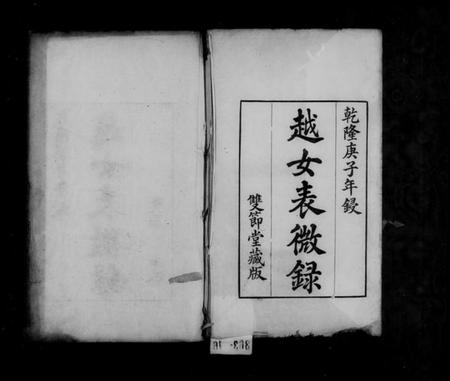 乾隆庚子年鋟
越女表微録
雙節堂藏版